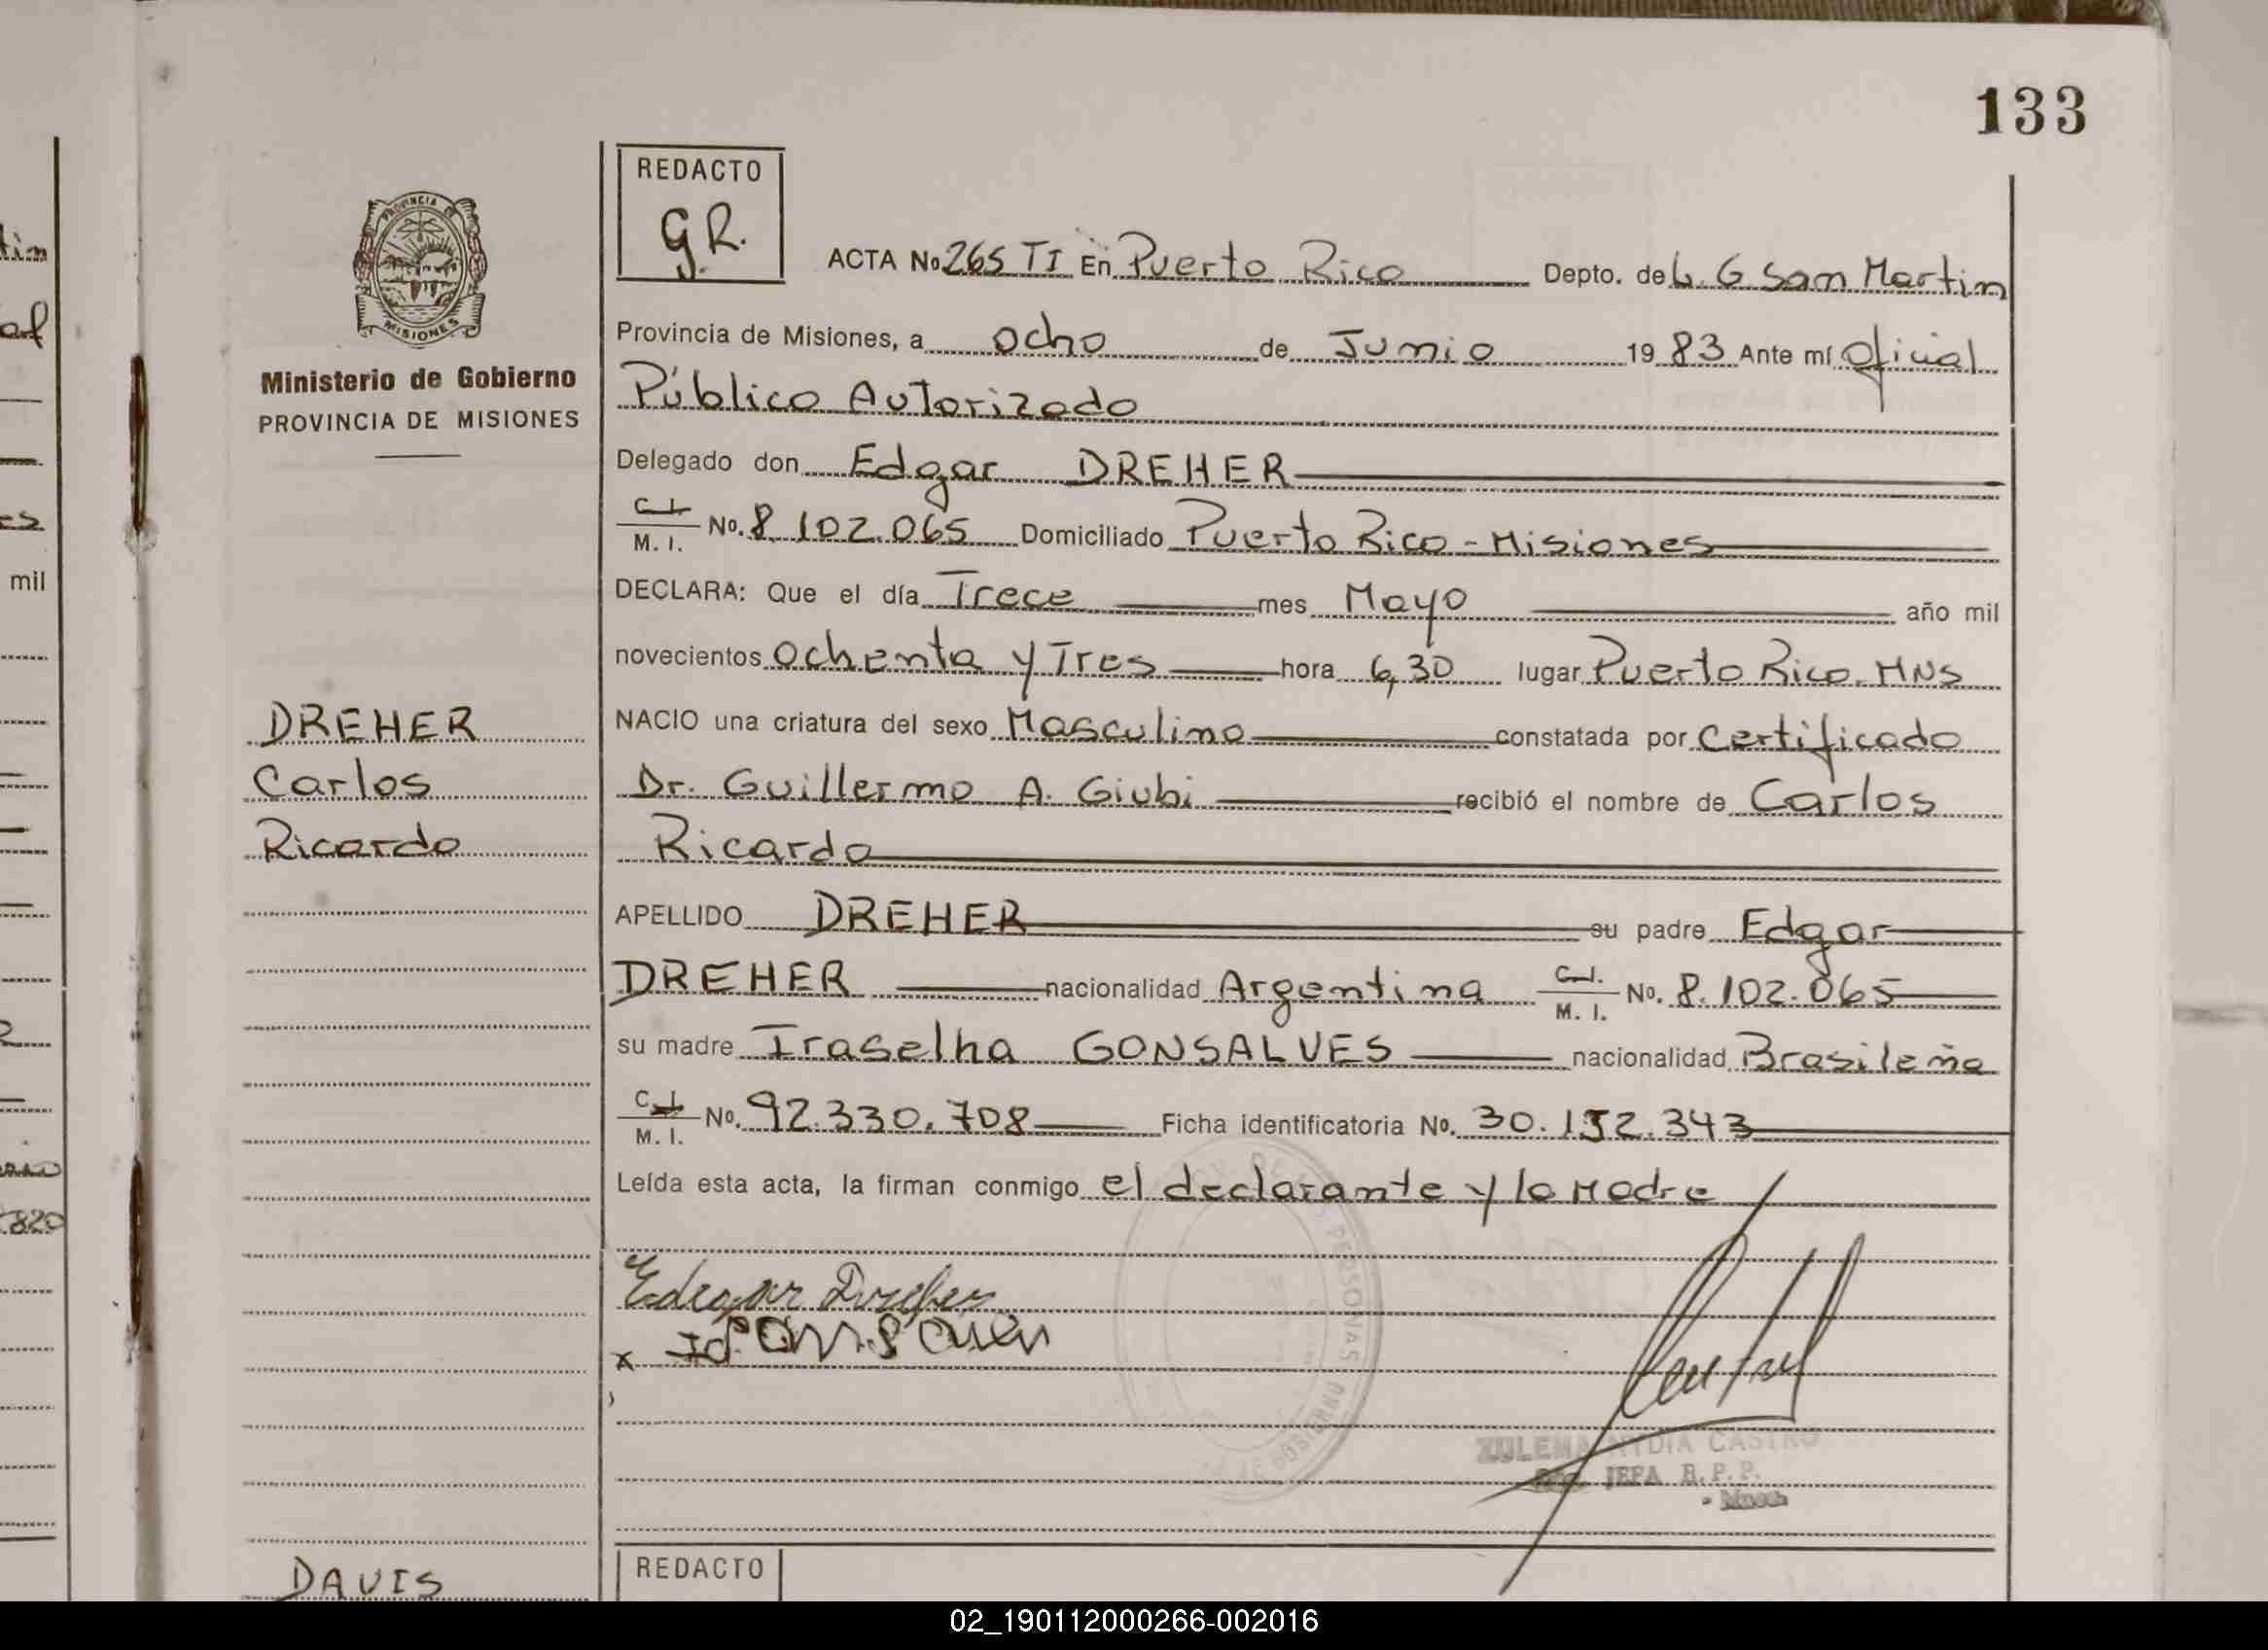 133
REDACTO
G.R.
ACTA No 265 TI En Puerto Rico Depto. de L. G San Martin
Provincia de Misiones, a ocho de Junio 1983 Ante mí oficial
Público Autorizado
Delegado don Edgar DREHER
C. I. M. I. No. 8.102.065 Domiciliado Puerto Rico - Misiones
DECLARA: Que el día Trece mes Mayo año mil
novecientos ochenta y Tres hora 6,30 lugar Puerto Rico. MNS
NACIO una criatura del sexo Masculino constatada por Certificado
Dr. Guillermo A. Giubi recibió el nombre de Carlos
Ricardo
APELLIDO DREHER su padre Edgar
DREHER nacionalidad Argentina C. I. M. I. No. 8.102.065
su madre Iraselha GONSALVES nacionalidad Brasileña
C. I. M. I. No. 92.330.708 Ficha identificatoria No. 30.152.343
Leída esta acta, la firman conmigo el declarante y la Madre
Edgar Dreher
x
ZULEMA NYDIA CASTRO
JEFA R.P.P.
REDACTO
PROVINCIA DE
MISIONES
Ministerio de Gobierno
PROVINCIA DE MISIONES
DREHER
Carlos
Ricardo
DAVIS
mil
820
PERSONAS
02_190112000266-002016